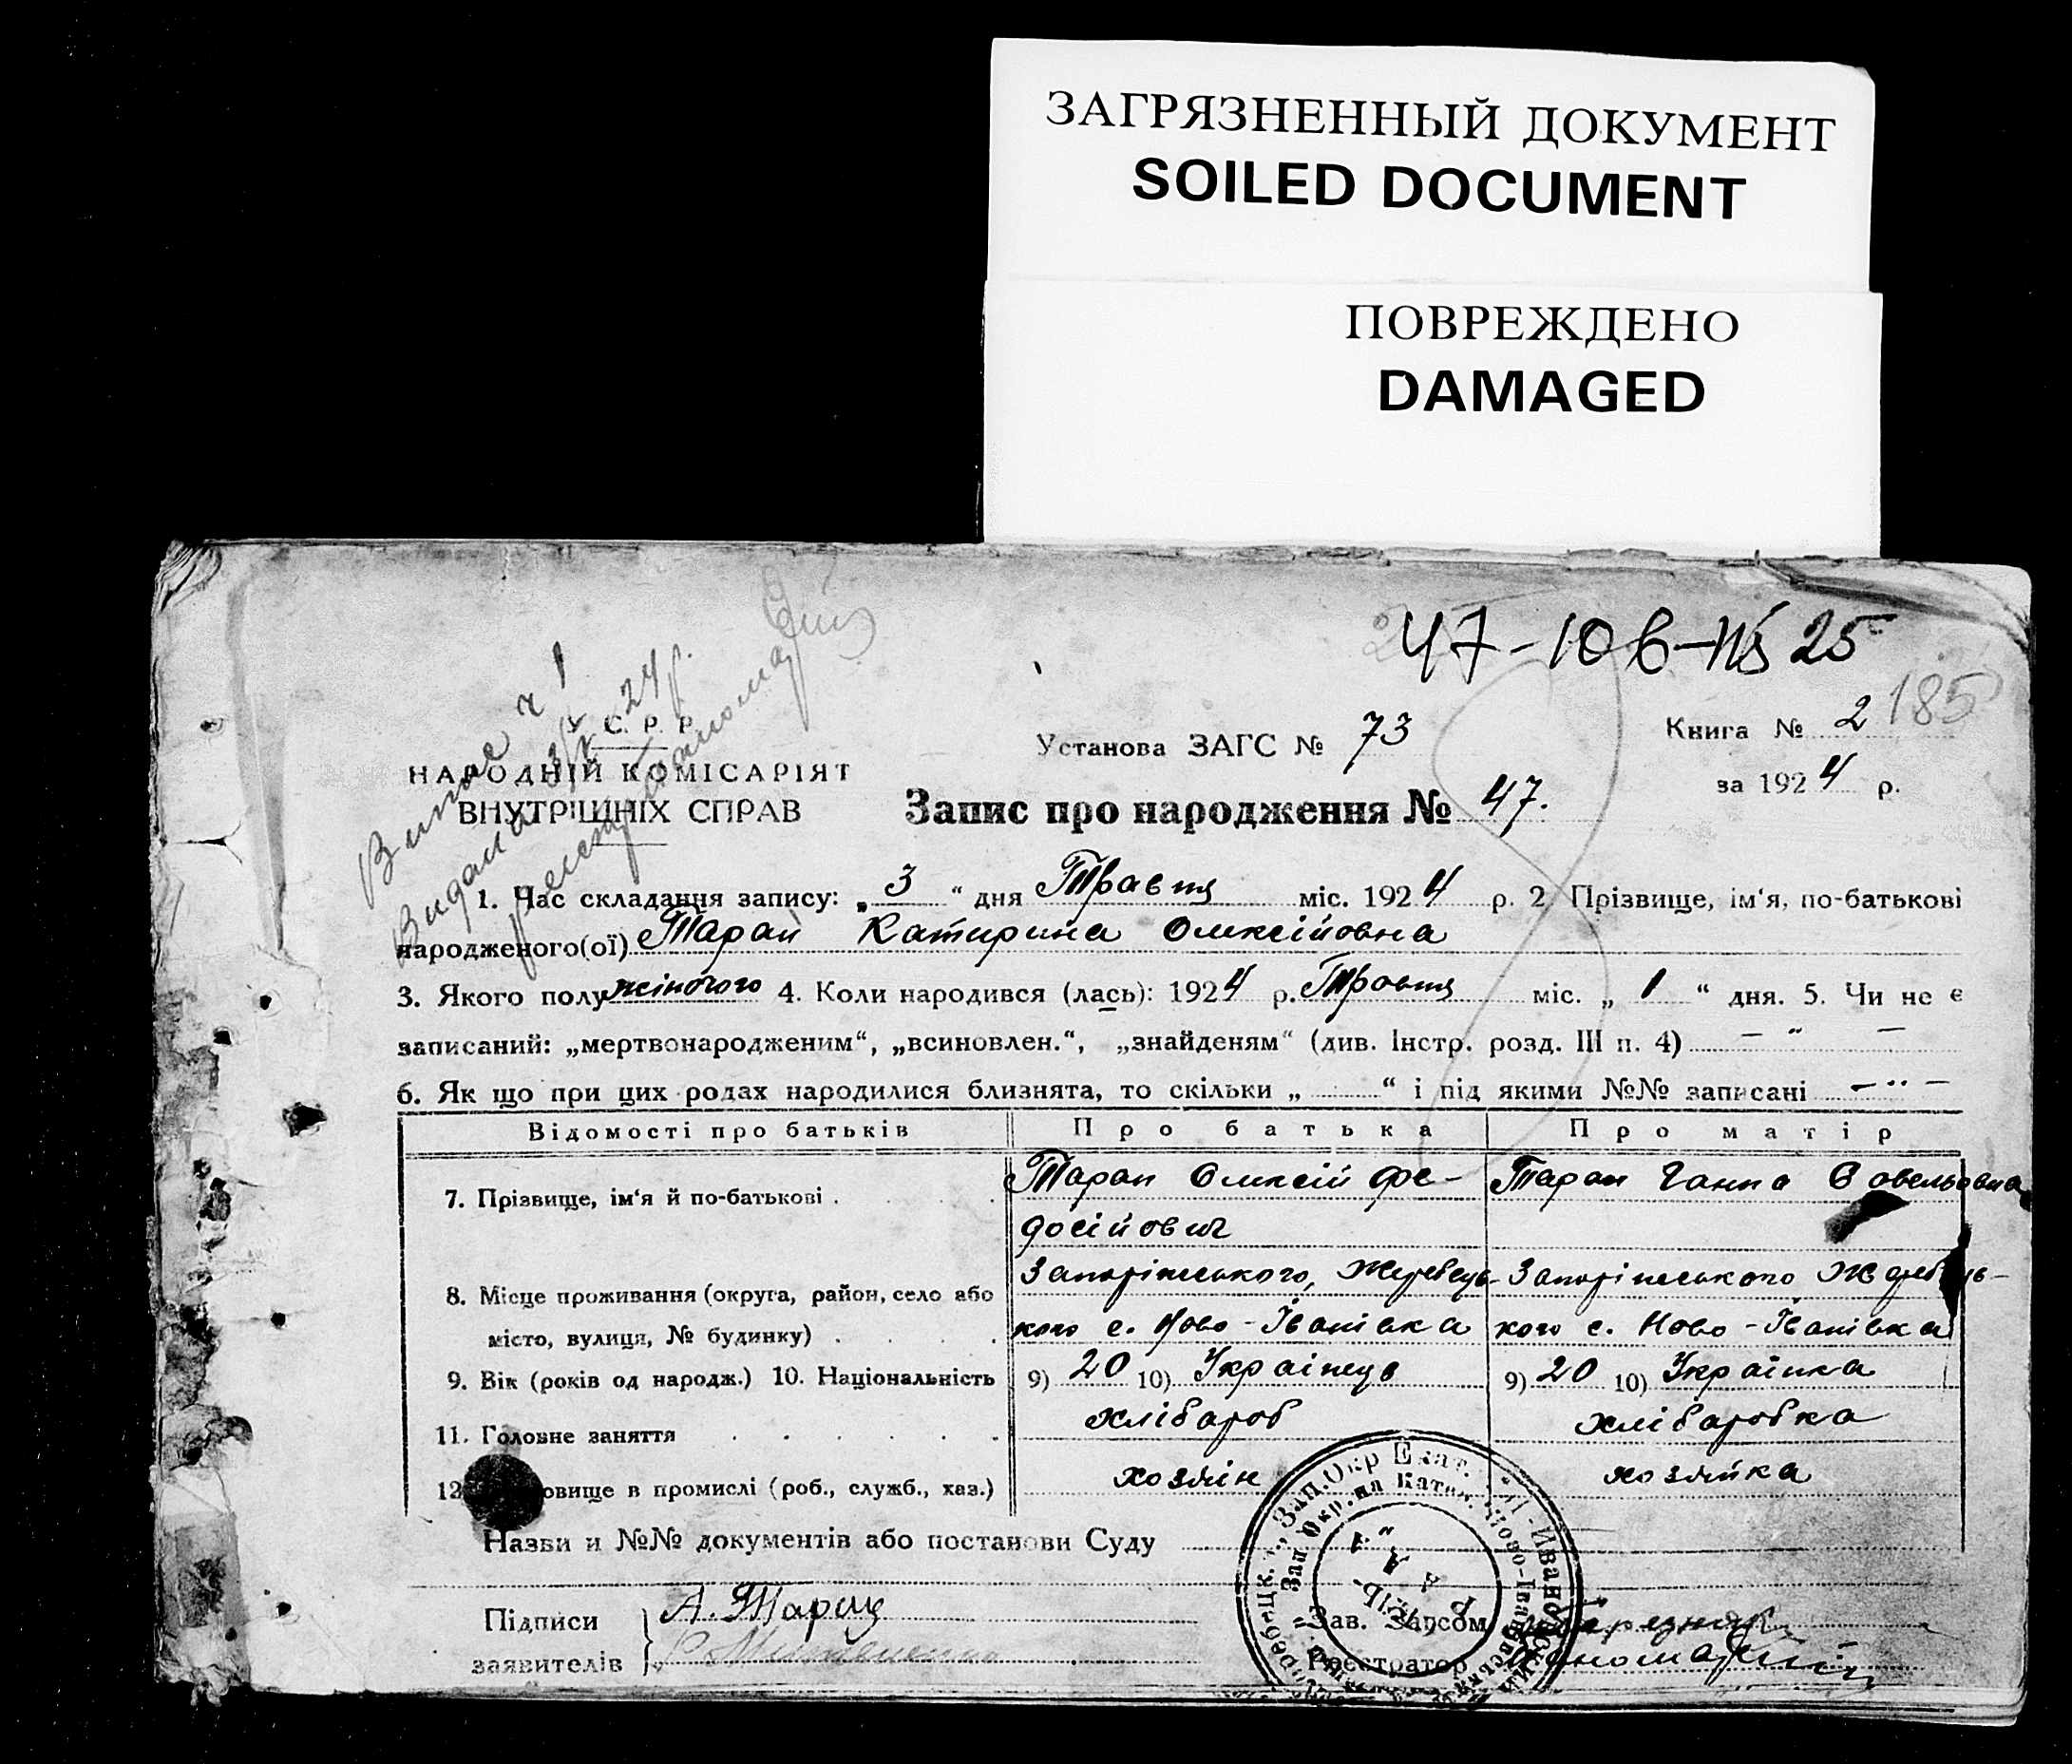 ЗАГРЯЗНЕННЫЙ ДОКУМЕНТ
SOILED DOCUMENT
ПОВРЕЖДЕНО
DAMAGED
185
Випис ч 1
Видана 24 р.
У. С. Р. Р.
НАРОДНІЙ КОМІСАРІЯТ
ВНУТРІШНІХ СПРАВ
Установа ЗАГС № 73
Книга № 2
за 1924 р.
Запис про народження № 47.
1. Час складання запису: „3“ дня Травця міс. 1924 р. 2. Прізвище, ім'я, по-батькові
народженого(ої) Таран Катирина Олексійовна
3. Якого полу жіночого 4. Коли народився (лась): 1924 р. Травця міс. „1“ дня. 5. Чи не є
записаний: „мертвонародженим“, „всиновлен.“, „знайденям“ (див. Інстр. розд. III п. 4) — „ —
6. Як що при цих родах народилися близнята, то скільки „ “ і під якими №№ записані — „ —
Відомості про батьків Про батька Про матір
7. Прізвище, ім'я й по-батькові Таран Олексій Фе- Таран Ганна
досійович
8. Місце проживання (округа, район, село або Запоріжського, Жеребець- Запоріжського Жеребець-
місто, вулиця, № будинку) кого с. Ново-Іванівка кого с. Ново-Іванівка
9. Вік (років од народж.) 10. Національність 9) 20 10) Українець 9) 20 10) Українка
11. Головне заняття хлібароб хлібаробка
12. овище в промислі (роб., служб., хаз.) хозяін хозяйка
Назви и №№ документів або постанови Суду
Підписи
заявителів
А. Таран
Зав. Запсом
Реєстратор